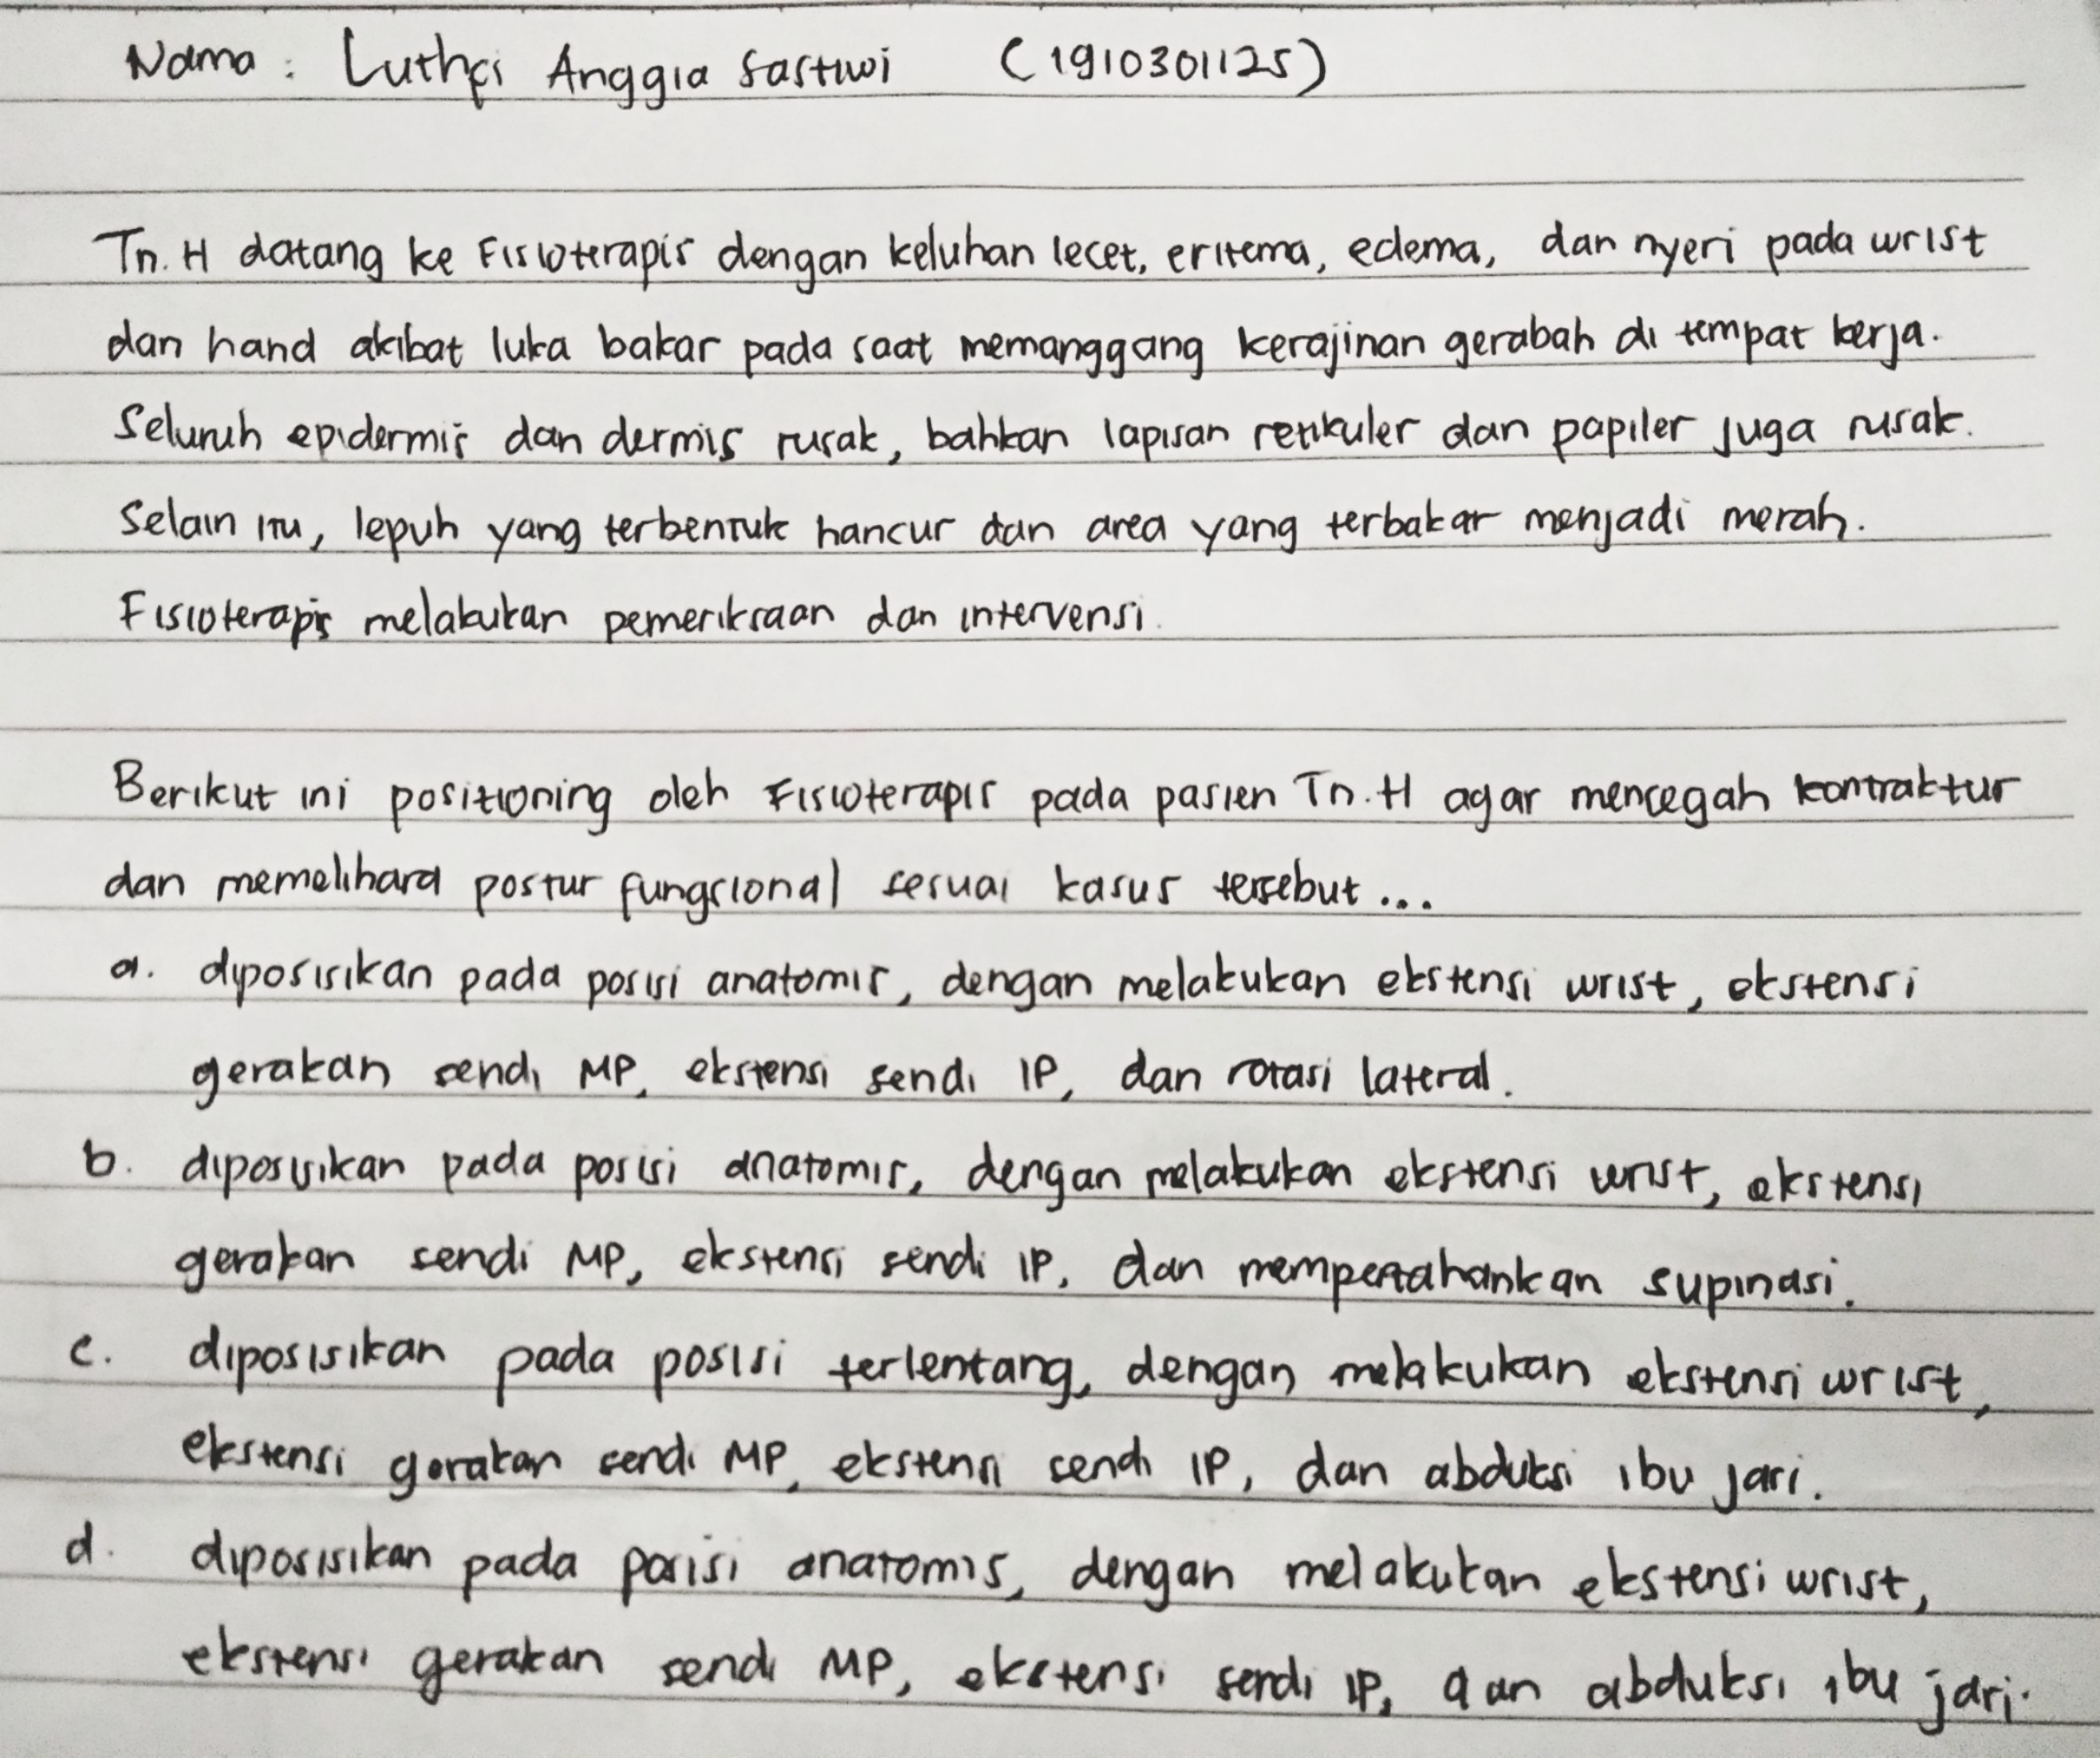 Nama : Luthfi Anggia Sastiwi (1910301125)
Tn. H datang ke Fisioterapis dengan keluhan lecet, eritema, edema, dan nyeri pada wrist
dan hand akibat luka bakar pada saat memanggang kerajinan gerabah di tempat kerja.
Seluruh epidermis dan dermis rusak, bahkan lapisan retikuler dan papiler juga rusak.
Selain itu, lepuh yang terbentuk hancur dan area yang terbakar menjadi merah.
Fisioterapis melakukan pemeriksaan dan intervensi.
Berikut ini positioning oleh Fisioterapis pada pasien Tn. H agar mencegah kontraktur
dan memelihara postur fungsional sesuai kasus tersebut ...
a. diposisikan pada posisi anatomis, dengan melakukan ekstensi wrist, ekstensi
gerakan sendi MP, ekstensi sendi IP, dan rotasi lateral.
b. diposisikan pada posisi anatomis, dengan melakukan ekstensi wrist, ekstensi
gerakan sendi MP, ekstensi sendi IP, dan mempertahankan supinasi.
c. diposisikan pada posisi terlentang, dengan melakukan ekstensi wrist,
ekstensi gerakan sendi MP, ekstensi sendi IP, dan abduksi ibu jari.
d. diposisikan pada posisi anatomis, dengan melakukan ekstensi wrist,
ekstensi gerakan sendi MP, ekstensi sendi IP, dan abduksi ibu jari.